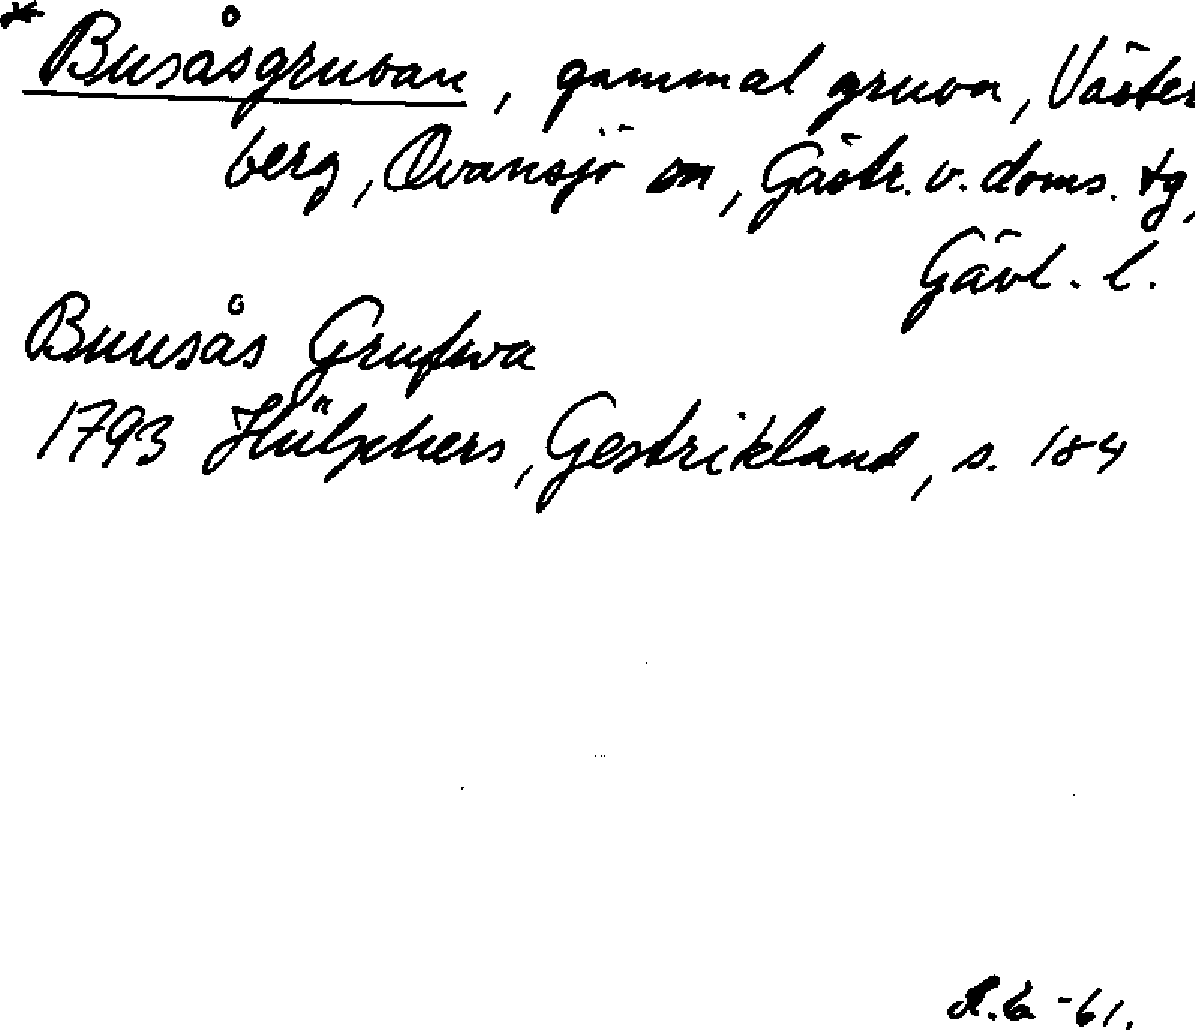 * Busåsgruvan, gammal gruva, Väster
berg, Ovansjö sn, Gästr. v. doms. tg,
Gävl. l.
Buusås Grufwa
1793 Hülphers, Gestrikland, s. 184
-61.